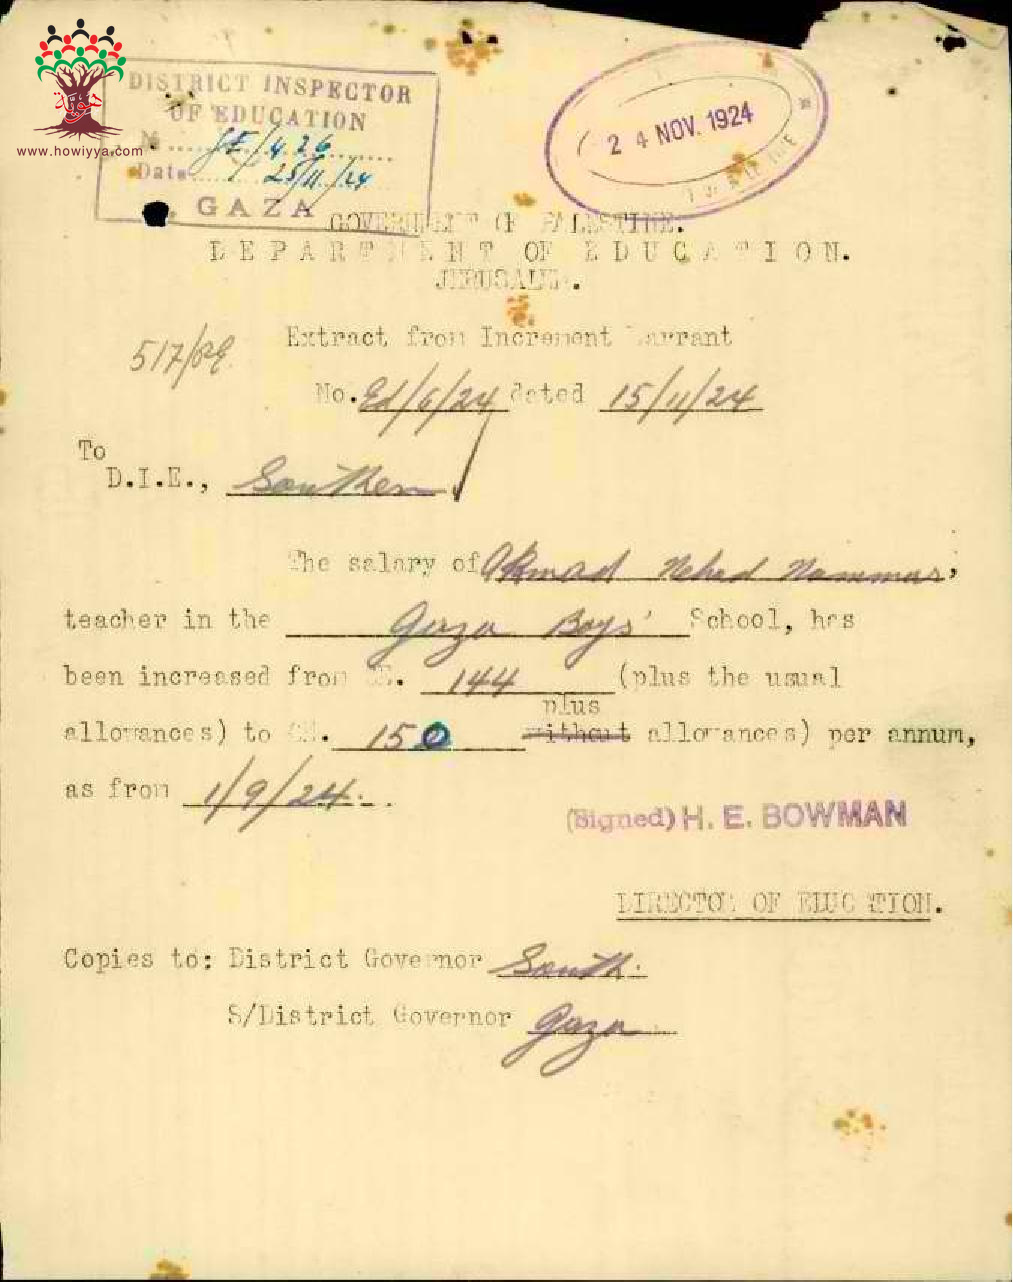 حوية
www.howiyya.com
DISTRICT INSPECTOR
OF EDUCATION
No GE/4.26
Date 25/11/24
GAZA
24 NOV. 1924
GOVERNMENT OF PALESTINE.
DEPARTMENT OF EDUCATION.
JERUSALEM.
517/
Extract from Increment Warrant
No. Ed/6/24 dated 15/11/24
To
D.I.E., Southern
The salary of Ahmad Nammar,
teacher in the Gaza Boys' School, has
been increased from £E. 144 (plus the usual
plus
allowances) to £E. 150 without allowances) per annum,
as from 1/9/24.
(Signed) H. E. BOWMAN
DIRECTOR OF EDUCATION.
Copies to: District Governor South.
S/District Governor Gaza